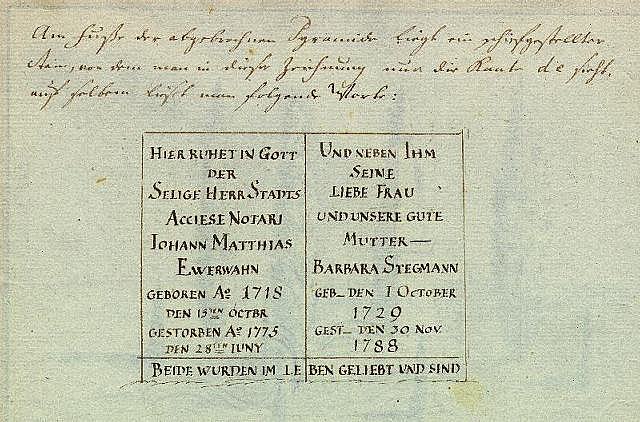 Am Fuße der abgebrochnen Pyramide liegt ein schiefgestellter
Stein, von dem man in dieser Zeichnung nur die Kante d e sieht,
auf selbem liest man folgende Worte:
HIER RUHET IN GOTT
DER
SELIGE HERR STADTS
ACCIESE NOTARJ
IOHANN MATTHIAS
EWERWAHN
GEBOREN Ao 1718
DEN 15TEN OCTBR
GESTORBEN Ao 1775
DEN 28TEN IUNY
UND NEBEN IHM
SEINE
LIEBE FRAU
UND UNSERE GUTE
MUTTER—
BARBARA STEGMANN
GEB– DEN 1 OCTOBER
1729
GEST– DEN 30 NOV.
1788
BEIDE WURDEN IM LEBEN GELIEBT UND SIND